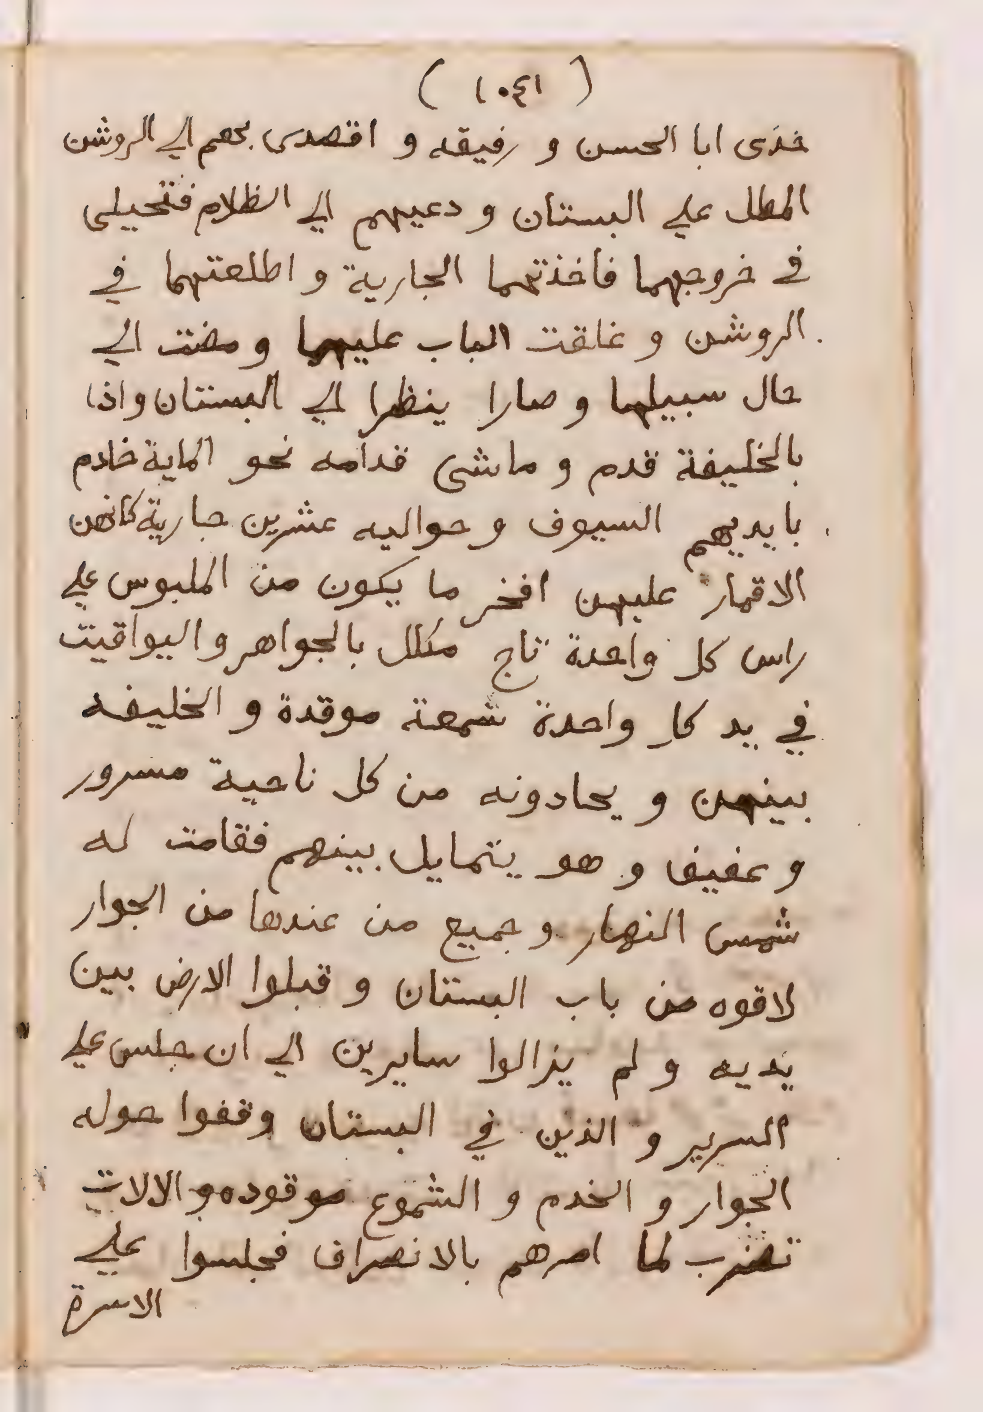 ( ١٠٤١ )
خذى ابا الحسن و رفيقه و اقتصدى بحهم الي الروشن
المطل علي البستان و دعيهم الي الظلام فتحيلى
في خروجهما فاخذتهما الجارية و اطلعتهما في
الروشن و غلقت الباب عليهما و مضت الي
حال سبيلها و صارا ينظرا الي البستان واذا
بالخليفة قدم و ماشى قدامه نحو الماية خادم
بايديهم السيوف و حواليه عشرين جارية كانهن
الاقمار عليهن افخر ما يكون من الملبوس علي
راس كل واحدة تاج مكلل بالجواهر و اليواقيت
في يد كل واحدة شمعة موقدة و الخليفه
بينهن و يحادونه من كل ناحية مسرور
و عفيف و هو يتمايل بينهم فقامت له
شمس النهار و جميع من عندها من الجوار
لاقوه من باب البستان و قبلوا الارض بين
يديه و لم يزالوا سايرين الي ان جلس علي
السرير و الذين في البستان وقفوا حوله
الجوار و الخدم و الشموع موقوده و الالات
تضرب لما امرهم بالانصراف فجلسوا علي
الاسرة